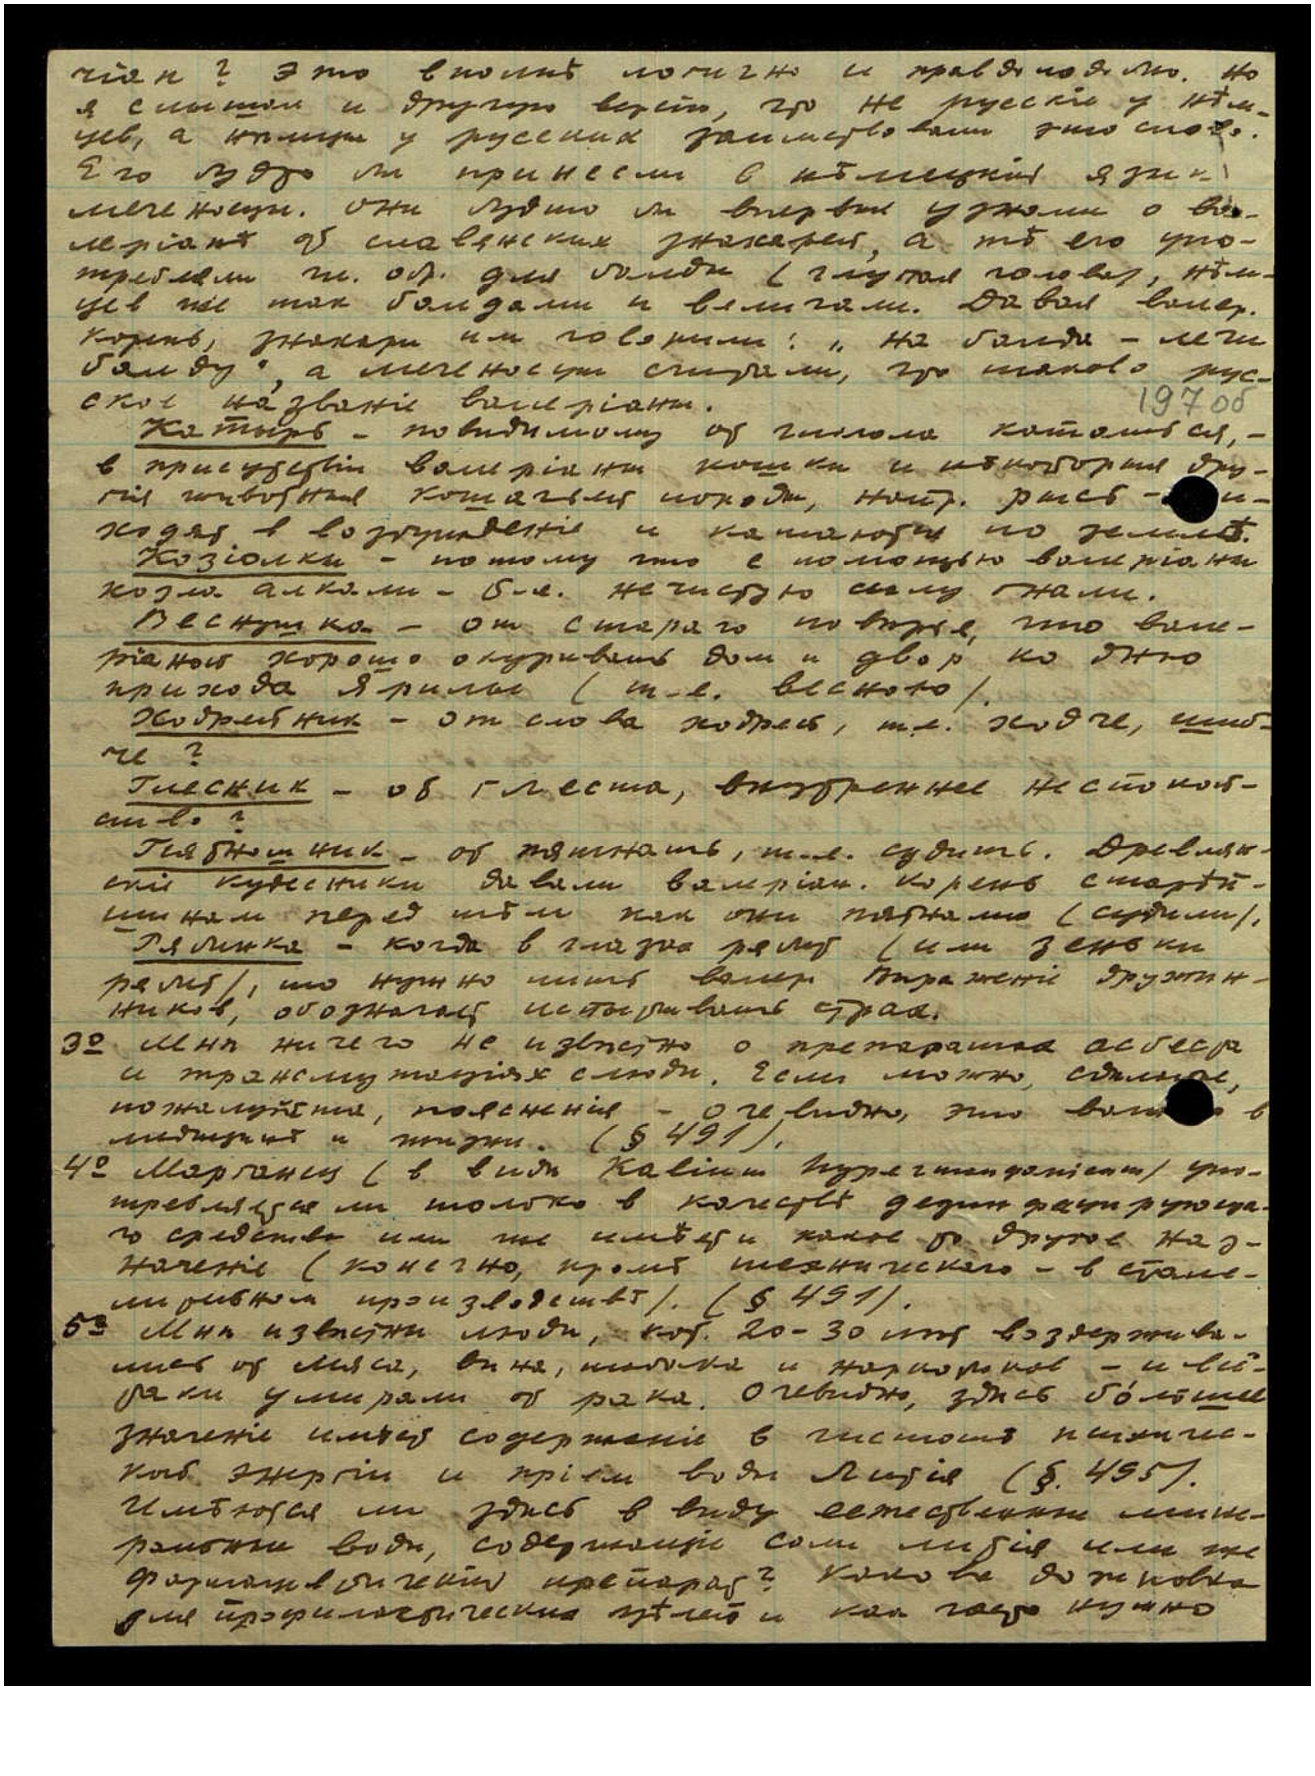 чіан? Это вполнѣ логично и правдоподобно. Но
я слышал и другую версію, что не русскіе у нѣм-
цев, а нѣмцы у русских заимствовали это слово.
Его будто бы принесли в нѣмецкій язык
меченосцы. Они будто бы впервые узнали о ва-
леріанѣ от славянских знахарей, а тѣ его упо-
требляли т. обр. для балды (глупая голова), нѣм-
цев же так балдами и величали. Давая валер.
корень, знахари им говорили: „на балда - лечи
балду", а меченосцы считали, что таково рус-
ское названіе валеріаны.
197 об
Катырь - повидимому от глагола кататься, -
в присутствіи валеріаны кошки и нѣкоторыя дру-
гія животныя кошачьей породы, напр. рысь -
ходят в возбужденіе и катаются по землѣ.
Козіолки - потому что с помощью валеріаны
козла алкали - т.е. нечистую силу гнали.
Веснушка - от стараго повѣрья, что вале-
ріаной хорошо окуривать дом и двор ко дню
прихода Ярилы (т.е. весною).
Ходрейник - от слова ходрей, т.е. ходче, шиб-
че?
Глесник - от глеста, внутреннее неспокой-
ство?
Пятношник - от пятнать, т.е. судить. Древлян-
скіе кудесники давали валеріан. корень старѣй-
шинам перед тѣм как они пятнали (судили).
Рябинка - когда в глазах рябит (или зеньки
рябит), то нужно пить валер. Выраженіе дружин-
ников, обозначает испытывать страх.
3º Мнѣ ничего не извѣстно о препаратах асбеста
и трансмутаціях слюды. Если можно, сдѣлайте,
пожалуйста, поясненія - очевидно, это в
медицинѣ и жизни. (§ 491).
4º Марганец (в видѣ Kalium hypermanganicum) упо-
требляется ли только в качествѣ дезинфацирующа-
го средства или же имѣет и какое то другое наз-
наченіе (конечно, кромѣ техническаго - в стале-
литейном производствѣ). (§ 491).
5º Мнѣ извѣстны люди, кот. 20-30 лѣт воздержива-
лись от мяса, вина, табака и наркотиков - и всё-
таки умирали от рака. Очевидно, здѣсь бóльшее
значеніе имѣет содержаніе в чистотѣ психиче-
ской энергіи и пріем воды Литія (§. 495).
Имѣются ли здѣсь в виду естественныя мине-
ральныя воды, содержащіе соли литія или же
фармацевтическій препарат? Какова дозировка
для профилактических цѣлей и как часто нужно